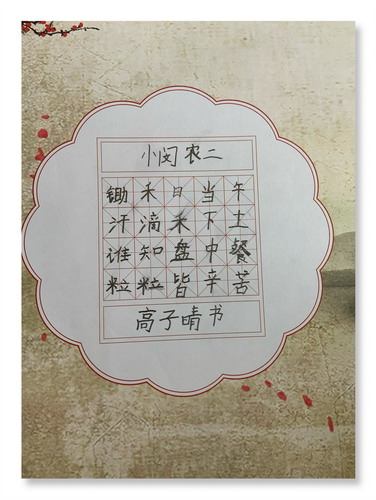 小闵农二
锄禾日当午
汗滴禾下土
谁知盘中餐
粒粒皆辛苦
高子晴书